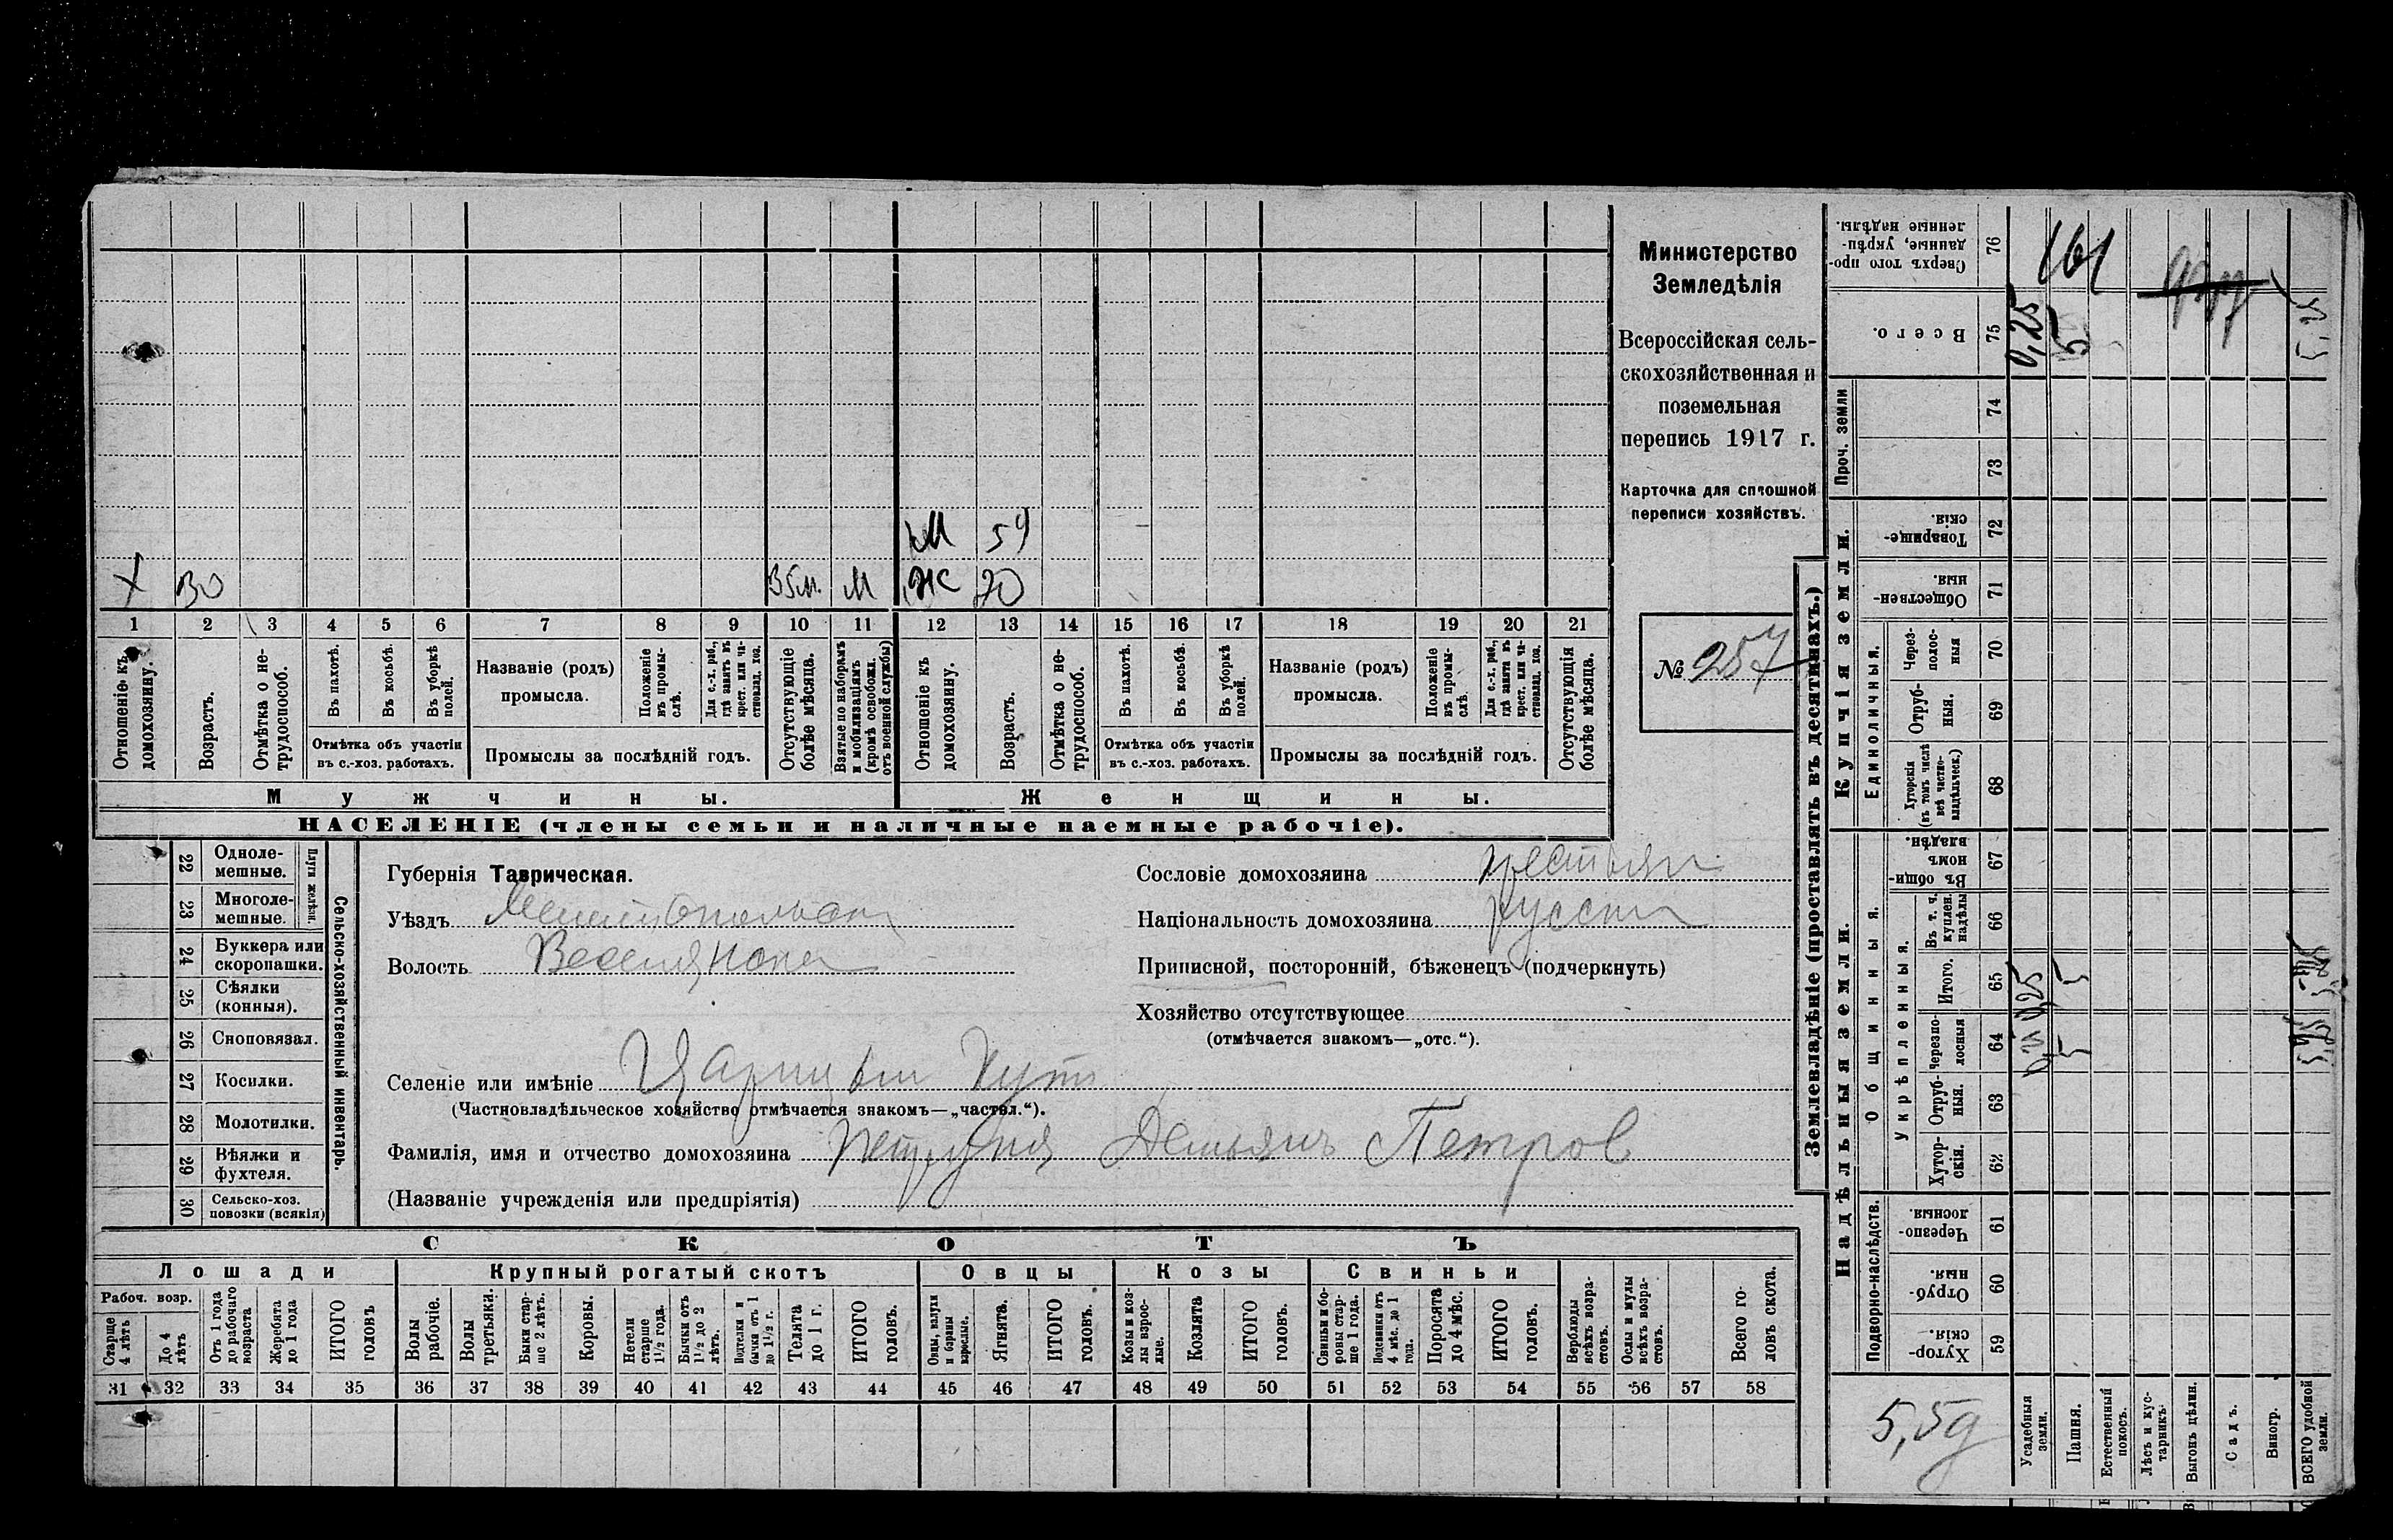 Министерство
Земледѣлія
Всероссійская сель-
скохозяйственная и
поземельная
перепись 1917 г.
Карточка для сплошной
переписи хозяйствъ.
№ 257
М 54
Х 30 М Ж 20
1 2 3 4 5 6 7 8 9 10 11 12 13 14 15 16 17 18 19 20 21
Отношеніе къ домохозяину.
Возрастъ.
Отмѣтка о не-трудоспособ.
Въ пахотѣ.
Въ косьбѣ.
Въ уборкѣ полей.
Отмѣтка объ участіи
въ с.-хоз. работахъ.
Названіе (родъ)
промысла.
Положеніе въ промы-слѣ.
Для с.-х. раб., гдѣ занятъ въ крест. или ча-стновлад. хоз.
Промыслы за послѣдній годъ.
Отсутствующіе болѣе мѣсяца.
Взятые по наборамъ и мобилизаціямъ (кромѣ освобожд. отъ военной службы)
Отношеніе къ домохозяину.
Возрастъ.
Отмѣтка о не-трудоспособ.
Въ пахотѣ.
Въ косьбѣ.
Въ уборкѣ полей.
Отмѣтка объ участіи
въ с.-хоз. работахъ.
Названіе (родъ)
промысла.
Положеніе въ промы-слѣ.
Для с.-х. раб., гдѣ занята въ крест. или ча-стновлад. хоз.
Промыслы за послѣдній годъ.
Отсутствующія болѣе мѣсяца.
Мужчины.
Женщины.
НАСЕЛЕНІЕ (члены семьи и наличные наемные рабочіе).
22 Одноле-мешные.
23 Многоле-мешные.
Плуги желѣзн.
24 Буккера или скоропашки.
25 Сѣялки (конныя).
26 Сноповязал.
27 Косилки.
28 Молотилки.
29 Вѣялки и фухтеля.
30 Сельско-хоз. повозки (всякія)
Сельско-хозяйственный инвентарь.
Губернія Таврическая.
Уѣздъ
Волость
Селеніе или имѣніе Царицын Кут
(Частновладѣльческое хозяйство отмѣчается знакомъ—„частвл.“).
Фамилія, имя и отчество домохозяина Демьянъ Петров
(Названіе учрежденія или предпріятія)
Сословіе домохозяина крестьян
Національность домохозяина русски
Приписной, посторонній, бѣженецъ (подчеркнуть)
Хозяйство отсутствующее
(отмѣчается знакомъ—„отс.“).
СКОТЪ
Лошади
Крупный рогатый скотъ
Овцы
Козы
Свиньи
Рабоч. возр.
Старше 4 лѣтъ
До 4 лѣтъ
Отъ 1 года до рабочаго возраста
Жеребята до 1 года
ИТОГО головъ
Волы рабочіе.
Волы третьяки.
Быки стар-ше 2 лѣтъ.
Коровы.
Нетели старше 1½ года.
Бычки отъ 1½ до 2 лѣтъ.
Подтелки и бычки отъ 1 до 1½ г.
Телята до 1 г.
ИТОГО головъ.
Овцы, валухи и бараны взрослые.
Ягнята.
ИТОГО головъ.
Козы и коз-лы взрос-лые.
Козлята
ИТОГО головъ.
Свиньи и бо-ровы стар-ше 1 года.
Подсвинки отъ 4 мѣс. до 1 года.
Поросята до 4 мѣс.
ИТОГО головъ.
Верблюды всѣхъ возра-стовъ.
Ослы и мулы всѣхъ возра-стовъ.
Всего го-ловъ скота.
31 32 33 34 35 36 37 38 39 40 41 42 43 44 45 46 47 48 49 50 51 52 53 54 55 56 57 58
Землевладѣніе (проставлять въ десятинахъ.)
Купчія земли.
Надѣльныя земли.
76 Сверхъ того про-данные, укрѣп-ленные надѣлы.
161
75 Всего. 0,25 5 5,25
Проч. земли
74
73
72 Товарище-скія.
71 Обществен-ныя
Единоличныя.
70 Через-полос-ныя
69 Отруб-ныя.
68 Хуторскія (въ томъ числѣ всѣ частно-владѣльческ.)
Общинныя.
67 Въ общи-номъ владѣн.
Укрѣпленныя.
66 Въ т. ч. куплен. надѣлы
65 Итого. 0,25 5 5,25
64 Черезпо-лосныя 0,25 5 5,25
63 Отруб-ныя.
62 Хутор-скія.
Подворно-наслѣдств.
61 Черезпо-лосныя.
60 Отруб-ныя.
59 Хутор-скія.
5,5д
Усадебныя земли.
Пашня.
Естественный покосъ.
Лѣсъ и кус-тарникъ
Выгонъ цѣлин.
Садъ.
Виногр.
ВСЕГО удобной земли.